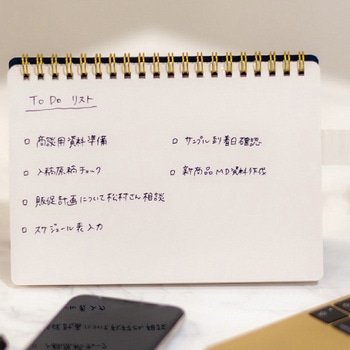 To Do リスト
□ 商談用資料準備
□ 入稿原稿チェック
□ 販促計画について松村さん相談
□ スケジュール表入力
□ サンプル到着日確認
□ 新商品MD資料作成